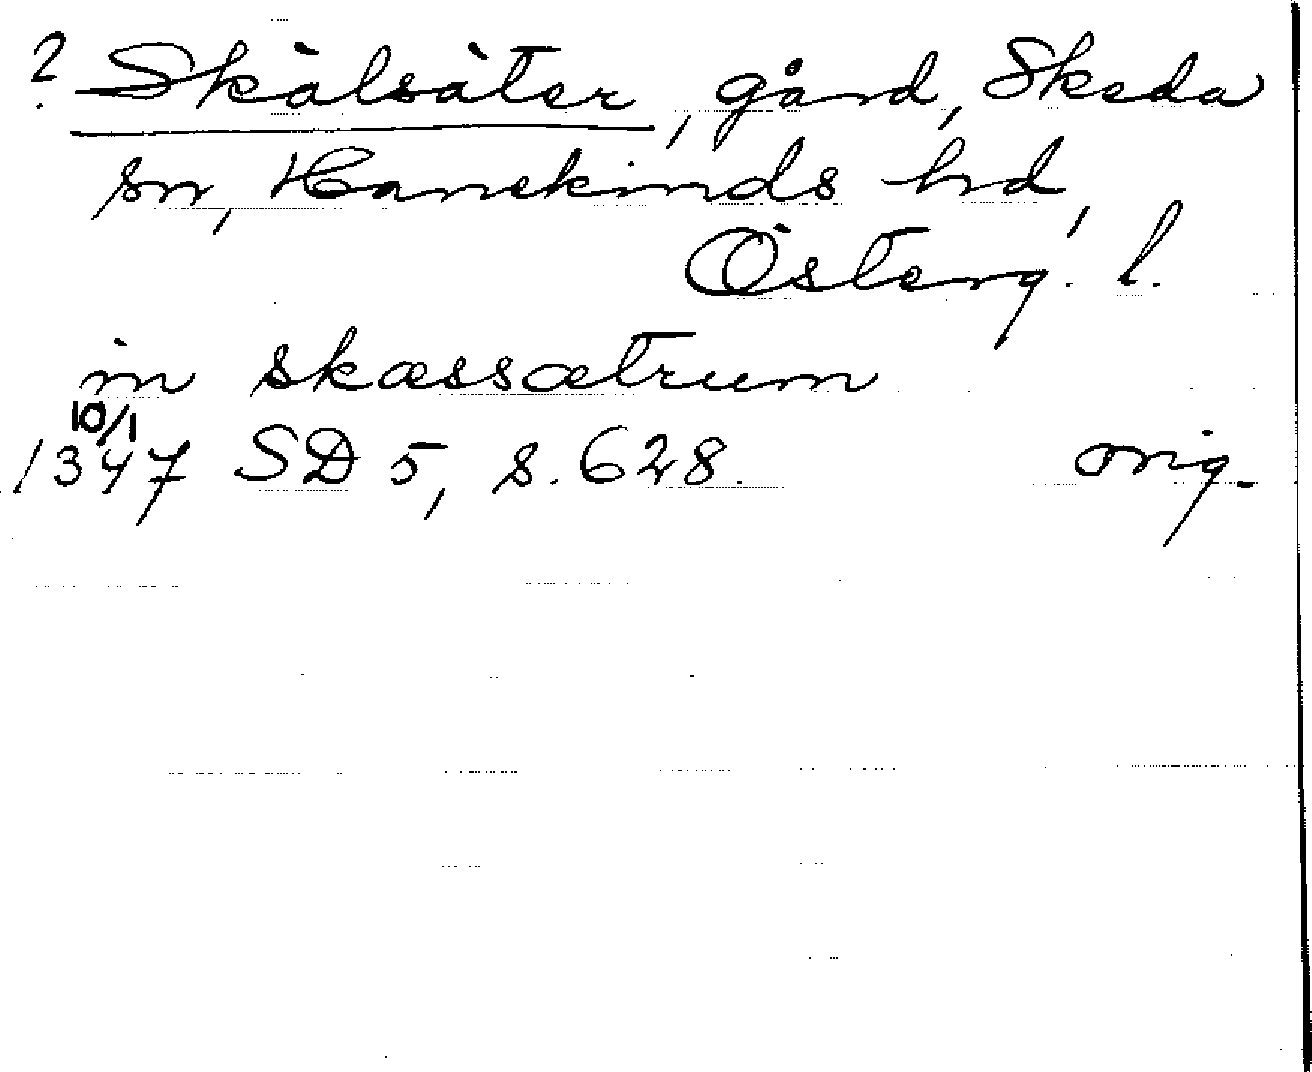 ? Skälsäter, gård, Skeda
sn, Hanekinds hd,
Österg. l.
in skæssætrum
10/1
1347 SD 5, s. 628. orig.